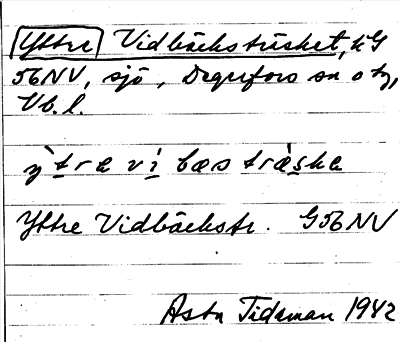 Yttre Vidbäcksträsket, kG
56NV, sjö, Degerfors sn o tg,
Vb. l.
ỳtra vi bæs træ̀ska
Yttre Vidbäckstr. G56NV
Asta Tidsman 1942